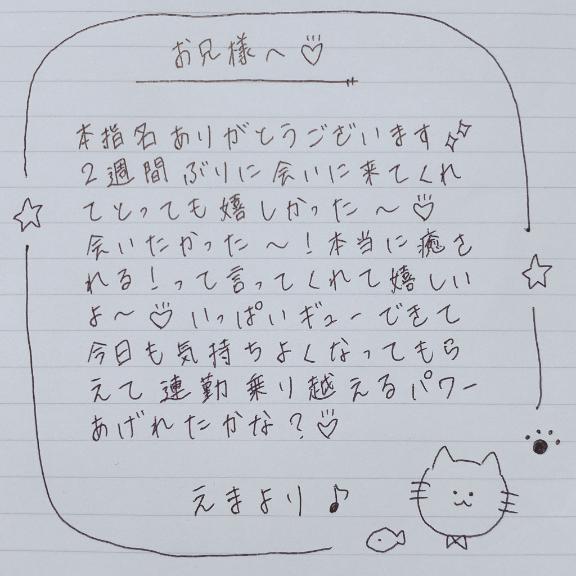 お兄様へ♡
本指名ありがとうございます✨
2週間ぶりに会いに来てくれ
てとっても嬉しかった～♡
会いたかった～！本当に癒さ
れる！って言ってくれて嬉しい
よ～♡いっぱいギューできて
今日も気持ちよくなってもら
えて連勤乗り越えるパワー
あげれたかな？♡
えまより♪